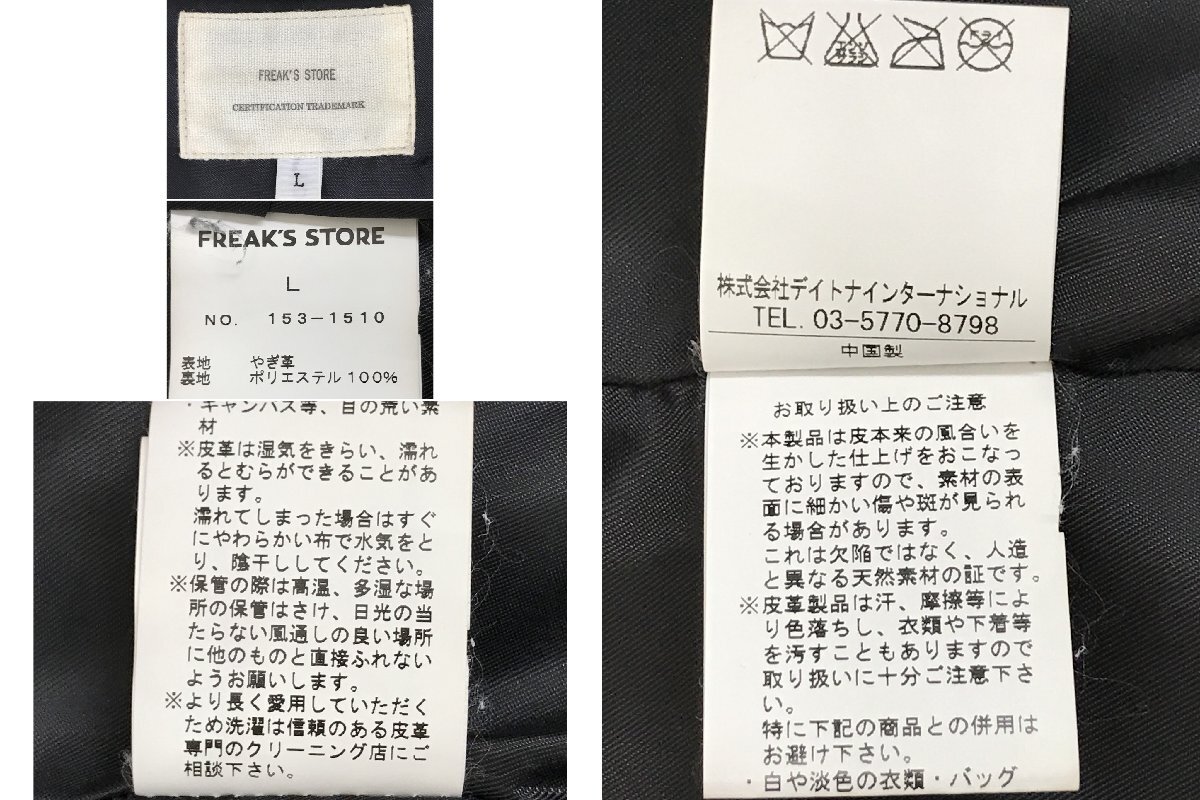 FREAK'S STORE
CERTIFICATION TRADEMARK
L
FREAK'S STORE
L
NO. 153-1510
表地 やぎ革
裏地 ポリエステル100%
・キャンバス等、目の荒い素
材
※皮革は湿気をきらい、濡れ
るとむらができることがあ
ります。
濡れてしまった場合はすぐ
にやわらかい布で水気をと
り、陰干ししてください。
※保管の際は高温、多湿な場
所の保管はさけ、日光の当
たらない風通しの良い場所
に他のものと直接ふれない
ようお願いします。
※より長く愛用していただく
ため洗濯は信頼のある皮革
専門のクリーニング店にご
相談下さい。
エンソ
サラシ
ドライ
株式会社デイトナインターナショナル
TEL. 03-5770-8798
中国製
お取り扱い上のご注意
※本製品は皮本来の風合いを
生かした仕上げをおこなっ
ておりますので、素材の表
面に細かい傷や斑が見られ
る場合があります。
これは欠陥ではなく、人造
と異なる天然素材の証です。
※皮革製品は汗、摩擦等によ
り色落ちし、衣類や下着等
を汚すこともありますので
取り扱いに十分ご注意下さ
い。
特に下記の商品との併用は
お避け下さい。
・白や淡色の衣類・バッグ